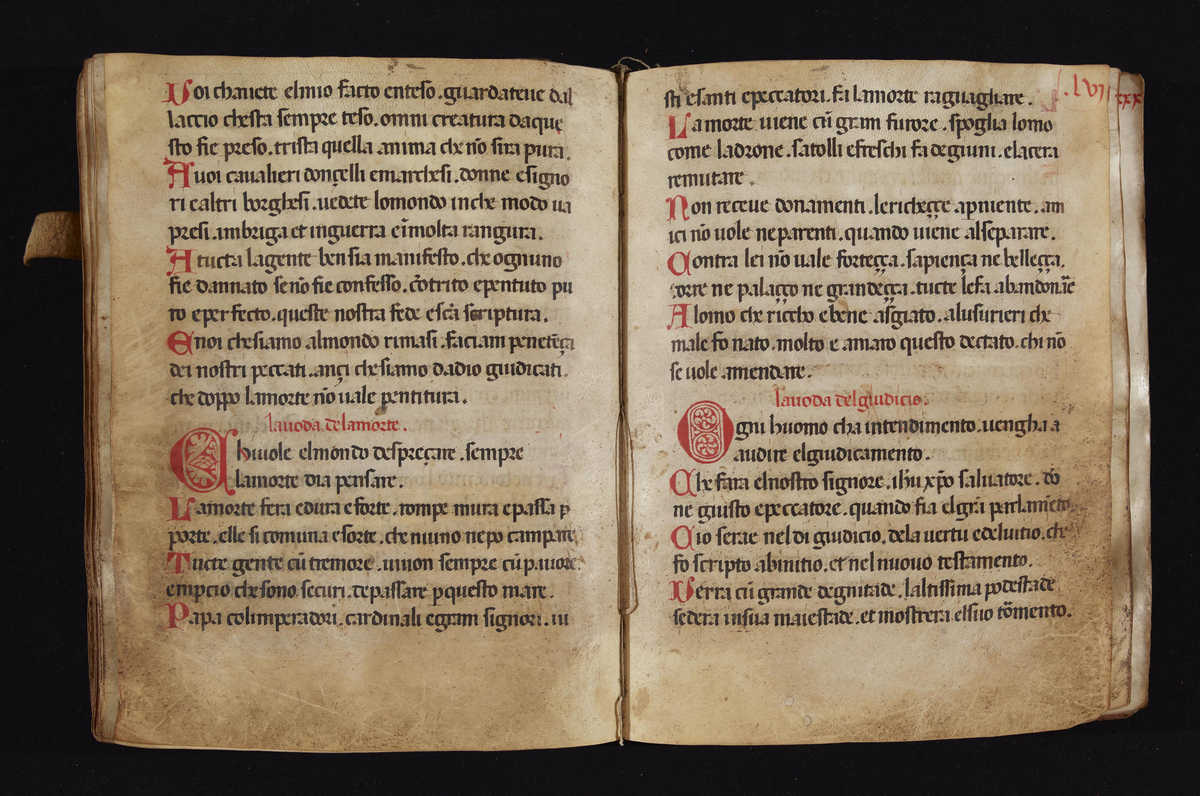 Voi chavete elmio facto enteso . guardateve dal
laccio chesta sempre teso . omni creatura daque
sto fie preso . trista quella anima che nõ sira pura .
A voi cavalieri donçelli emarchesi . donne esigno
ri ealtri borghesi . vedete lomondo inche modo va
presi . imbriga et inguerra eĩmolta rangura .
A tucta lagente ben sia manifesto . che ognuno
fie dannato se nõ fie confesso . cõtrito epentuto pu
ro eperfecto . queste nostra fede escã scriptura .
E noi che siamo almondo rimasi . faciam penetẽça
dei nostri peccati . ançi che siamo dadio giudicati .
che doppo lamorte nõ vale pentitura .
lavoda delamorte .
Chivuole elmondo despreçare . sempre
lamorte dia pensare .
Lamorte fera edura eforte . rompe mura epassa ꝑ
porte . elle si comuna esorte . che niuno nepo campare
Tucte gente cũ tremore . vivon sempre cũ
empcio che sono securi . de passare ꝑ questo mare .
Papa colimperadori . cardinali egram signori . iu
sti esanti epeccatori . fa lamorte raguagliare .
. LVII
xxx
Lamorte viene cũ gram furore . spoglia lomo
come ladrone . satolli efreschi fa degiuni . elacera
remutare .
Non receve donamenti . lericheççe apniente . am
ici nõ vole neparenti . quando viene alseparare .
Contra lei nõ vale forteçça . sapiença ne belleçça .
torre ne palaçço ne grandeçça . tucte lefa abandonãe
Alomo che riccho ebene asgiato . alusurieri che
male fo nato . molto e amaro questo dectato . chi nõ
se vole amendare .
lavoda del giudicio .
Ogni huomo cha intendimento . vengha a
audire elgiudicamento .
Che fara elnostro signore . ihũ xp̃o salvatore . do
ne giusto epeccatore . quando fia elgrã parlamẽto .
Cio serae nel di giudicio . dela vertu edelvitio . che
fo scripto abinitio . et nel nuovo testamento .
Verra cũ grande degnitade . laltissima podestade
sedera insua maiestade . et mostrera elsuo tõmento .